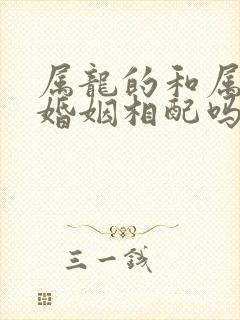 属龍的和属
婚姻相配吗
三一钱